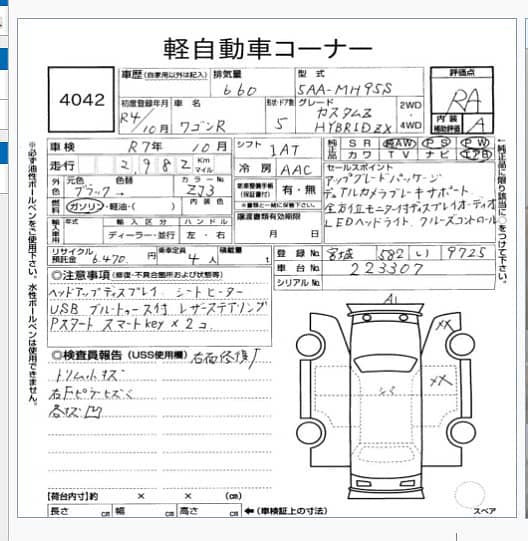 軽自動車コーナー
4042
車歴(自家用以外は記入)
排気量
660
型式
5AA-MH95S
評価点
RA
初度登録年月
R4/10月
車名
ワゴンR
形状・ドア数
5
グレード
カスタムZ
HYBRID ZX
2WD
4WD
内装
補助評価
A
車検 R7年 10月
シフト 1AT
純正品
SR AW PS PW
カワ TV ナビ エアB
走行 2,982 Km マイル
冷房 AAC
セールスポイント
アップグレードパッケージ
デュアルカメラブレーキサポート
全方位モニター付ディスプレイオーディオ
LEDヘッドライト クルーズコントロール
外色
元色
ブラック→
色替
カラーNo.
ZJ3
有・無
燃料
ガソリン・軽油・( )
内装色
※書類と一緒に保管して下さい
輸入車用
年式
輸入区分
ディーラー・並行
ハンドル
左・右
譲渡書類有効期限
月 日
リサイクル預託金
6,470 円
乗車定員
4人
積載量
t
登録No. 宮城 582 い 9725
車台No. 223307
シリアルNo.
◎注意事項(修復・不具合箇所および状態等)
ヘッドアップディスプレイ シートヒーター
USB ブルートゥース付 レザーステアリング
Pスタート スマートkey×2コ
◎検査員報告(USS使用欄)
トリム小キズ
各キズ凹
A1
XX
XX
【荷台内寸】約 × × (cm)
長さ cm 幅 cm 高さ cm ←(車検証上の寸法)
スペア
※必ず油性ボールペンをご使用下さい。水性ボールペンは使用できません。
←純正品に限り該当に○をつけて下さい。